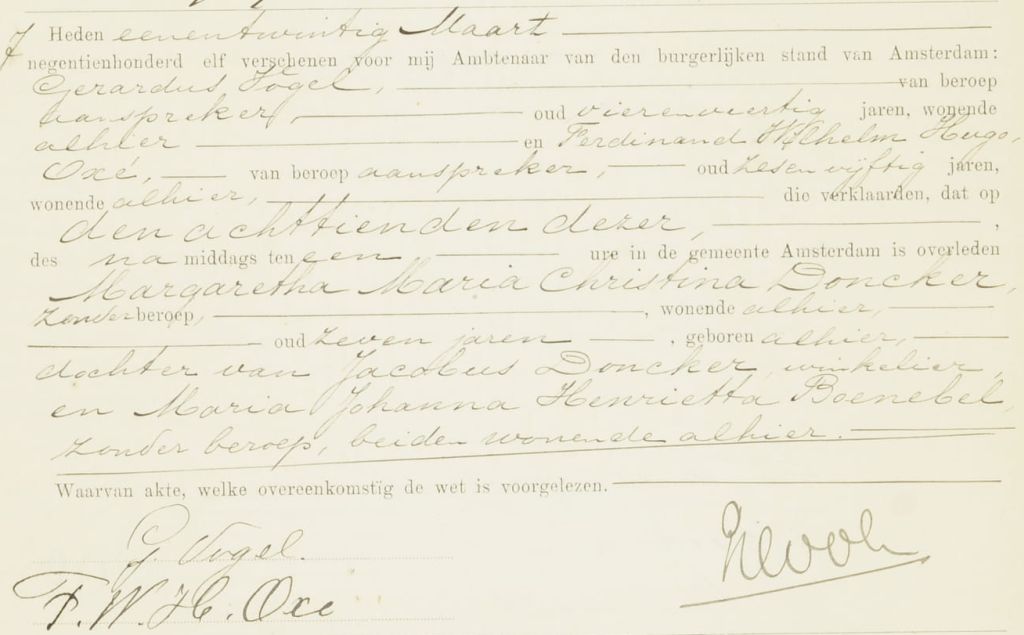 Heden eenentwintig Maart
negentienhonderd elf verschenen voor mij Ambtenaar van den burgerlijken stand van Amsterdam:
Gerardus Vogel, van beroep
aanspreker, oud vierenveertig jaren, wonende
alhier en Ferdinand Wilhelm Hugo
Oxé, van beroep aanspreker, oud zesenvijftig jaren,
wonende alhier, die verklaarden, dat op
den achttienden dezer,
des na middags ten een ure in de gemeente Amsterdam is overleden
Margaretha Maria Christina Doncker,
zonder beroep, wonende alhier,
oud zeven jaren, geboren alhier,
dochter van Jacobus Doncker, winkelier,
en Maria Johanna Henrietta Boenebel,
zonder beroep, beiden wonende alhier.
Waarvan akte, welke overeenkomstig de wet is voorgelezen.
G. Vogel.
F. W. H. Oxé